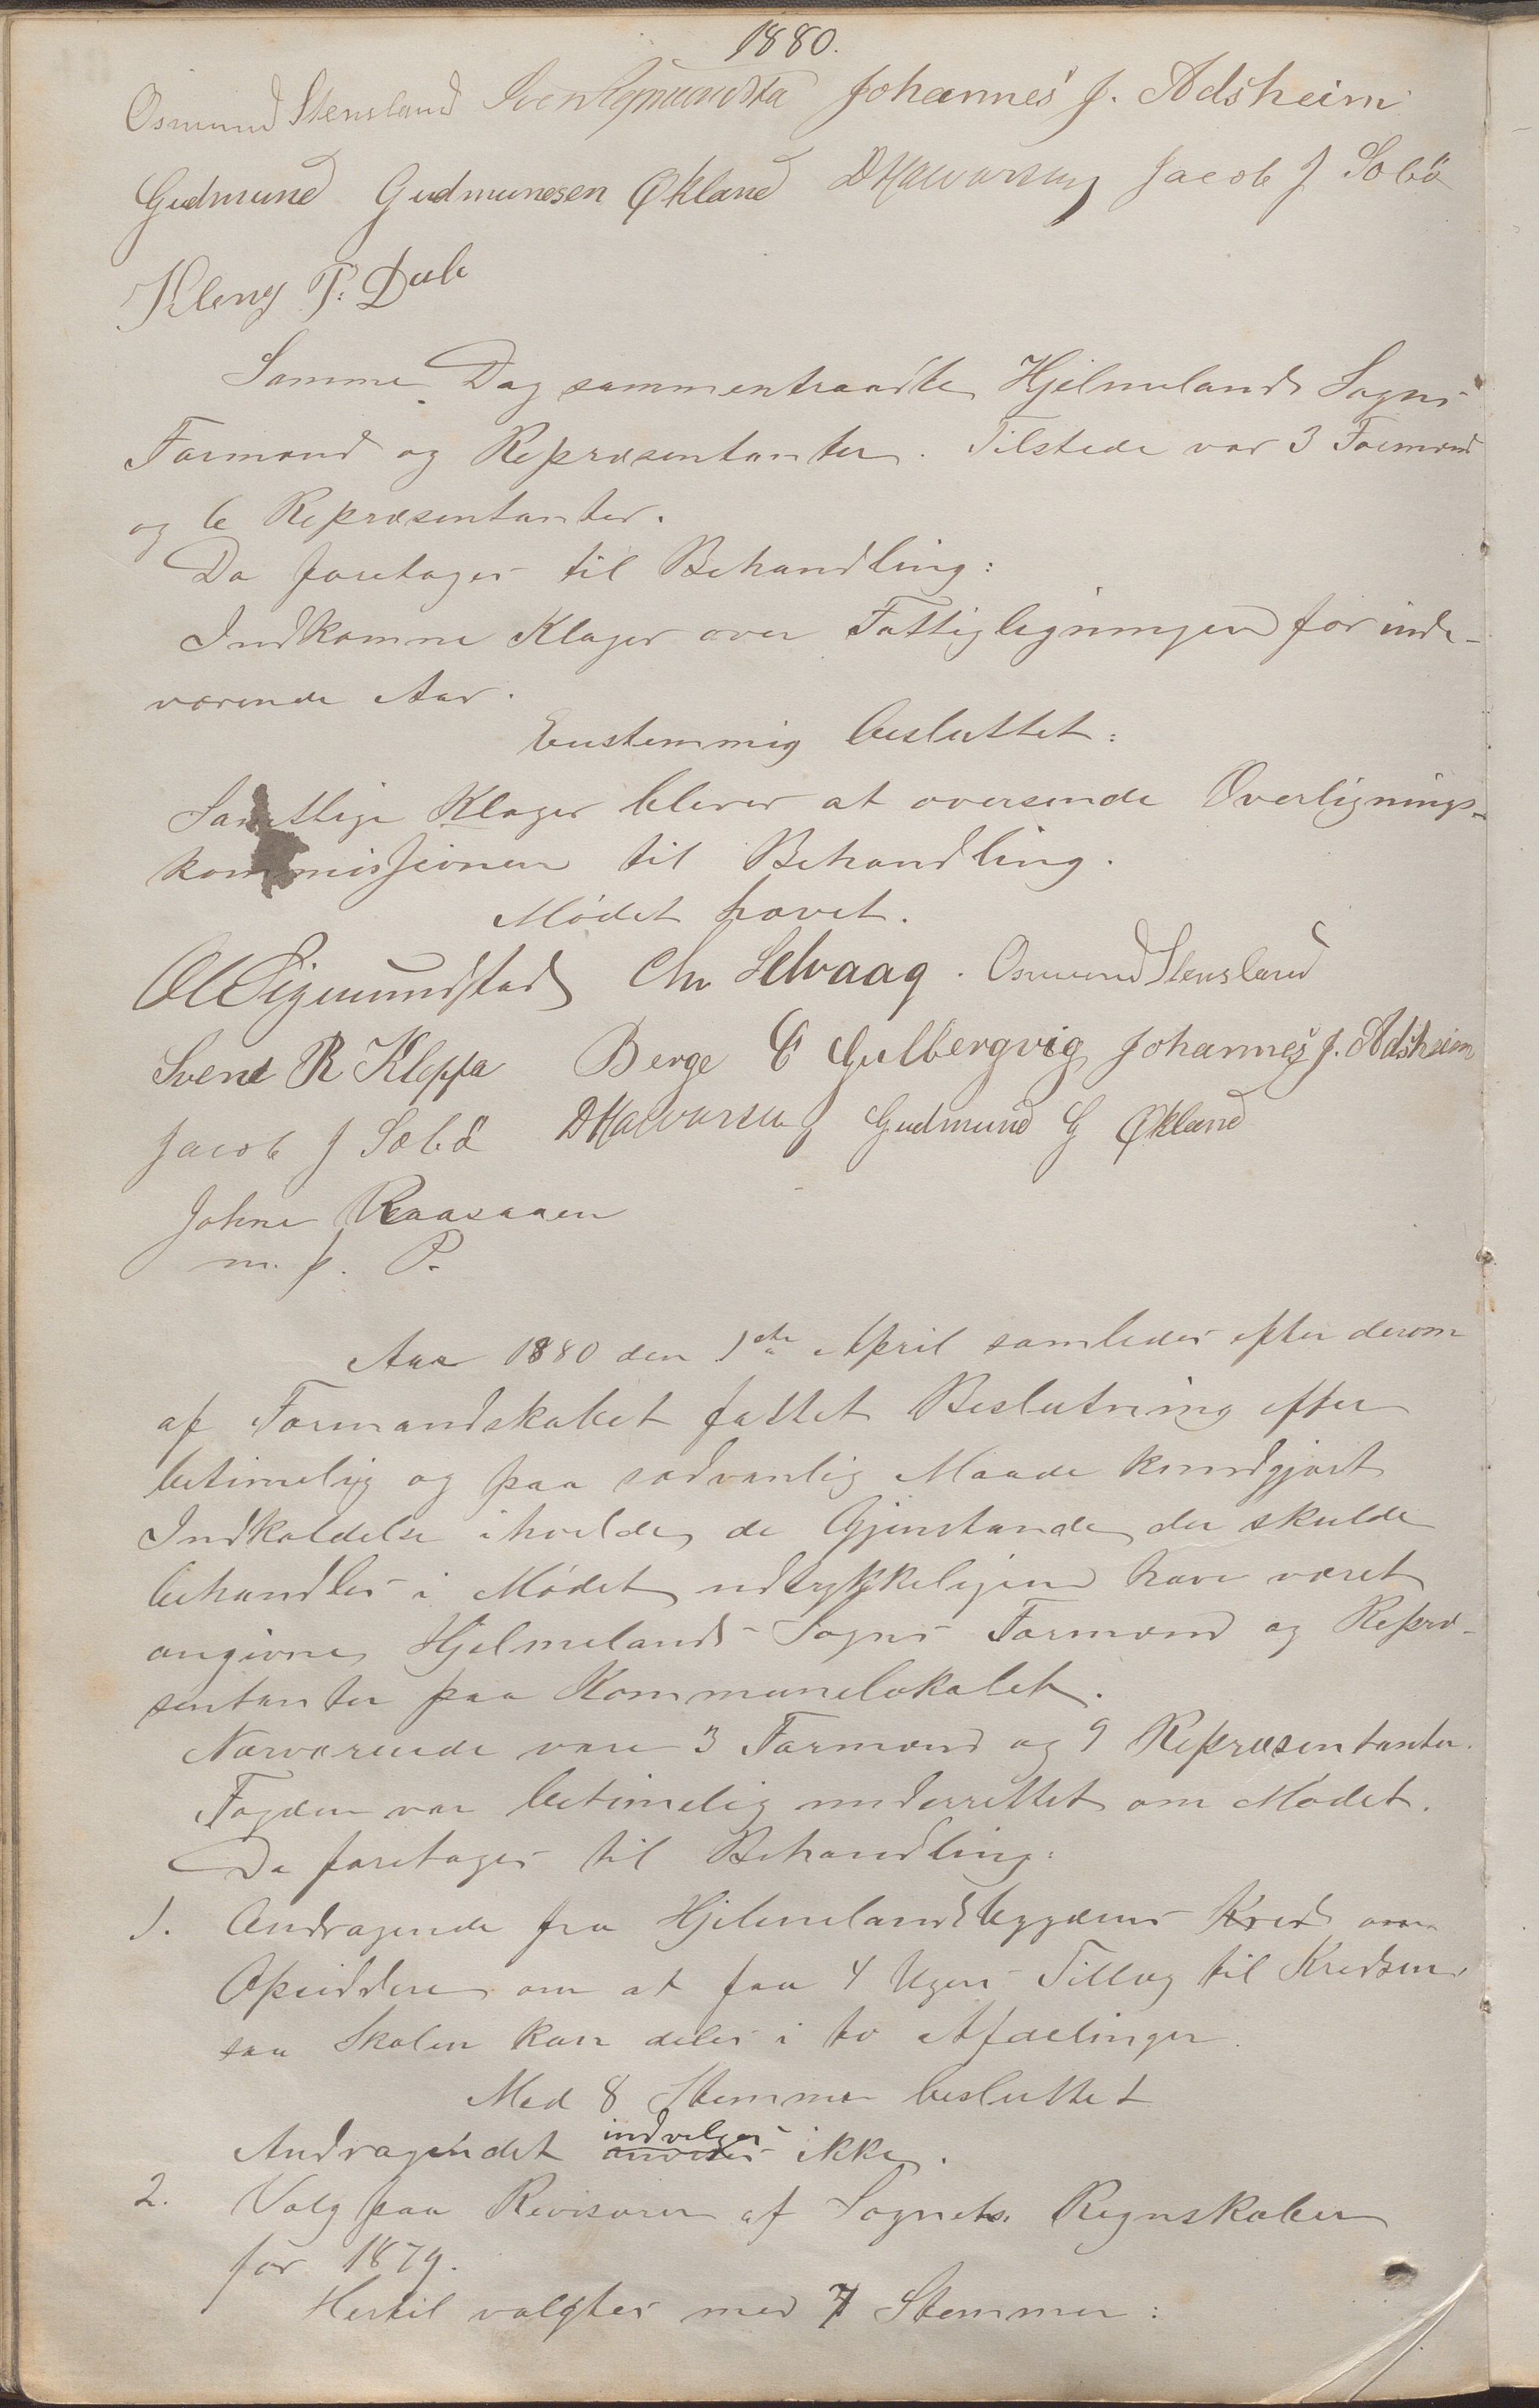 1880.
Osmund Stensland Johannes J. Adsheim
Gudmund Gudmundsen Økland DHalvorsen Jacob J Sæbö
Kleng P. Dale
Samme Dag sammentraadte Hjelmelands Sogns
Formænd og Repræsentanter. Tilstede var 3 Formænd
og 6 Repræsentanter.
Da foretages til Behandling:
Indkomne Klager over Fattigligningen for inde-
værende Aar.
Enstemmig besluttet:
Samtlige Klager bliver at oversende Overlignings-
kommissionen til Behandling.
Mödet hævet.
Ol Sigmundstad Chr Selvaag. Osmund Stensland
Svend R Kleppa Berge E Gulbergvig Johannes J. Adsheim
Jacob J Sæbö DHalvorsen Gudmund G Økland
Johne Raasaaen
m. f. P.
Aar 1880 den 1ste April samledes efter derom
af Formandskabet fattet Beslutning efter
betimelig og paa sædvanlig Maade kundgjort
Indkaldelse i hvilde de Gjenstande der skulde
behandles i Mödet udtrykkeligen have været
angivne Hjelmelands Sogns Formænd og Repræ-
sentanter paa Kommunelokalet.
Nærværende vare 3 Formænd og 9 Repræsentanter.
Fogden var betimelig underrettet om Mödet.
Da foretages til Behandling:
1. Andragende fra Hjelmelandsbygdens Kreds om
Opsiddere om at faa 4 Ugers Tillæg til Kredsen
saa Skolen kan deles i to Afdelinger.
Med 8 Stemmer besluttet
indvilges
Andragendet ikke.
2. Valg paa Revisorer af Sognets Regnskaber
for 1879.
Hertil valgtes med 7 Stemmer: